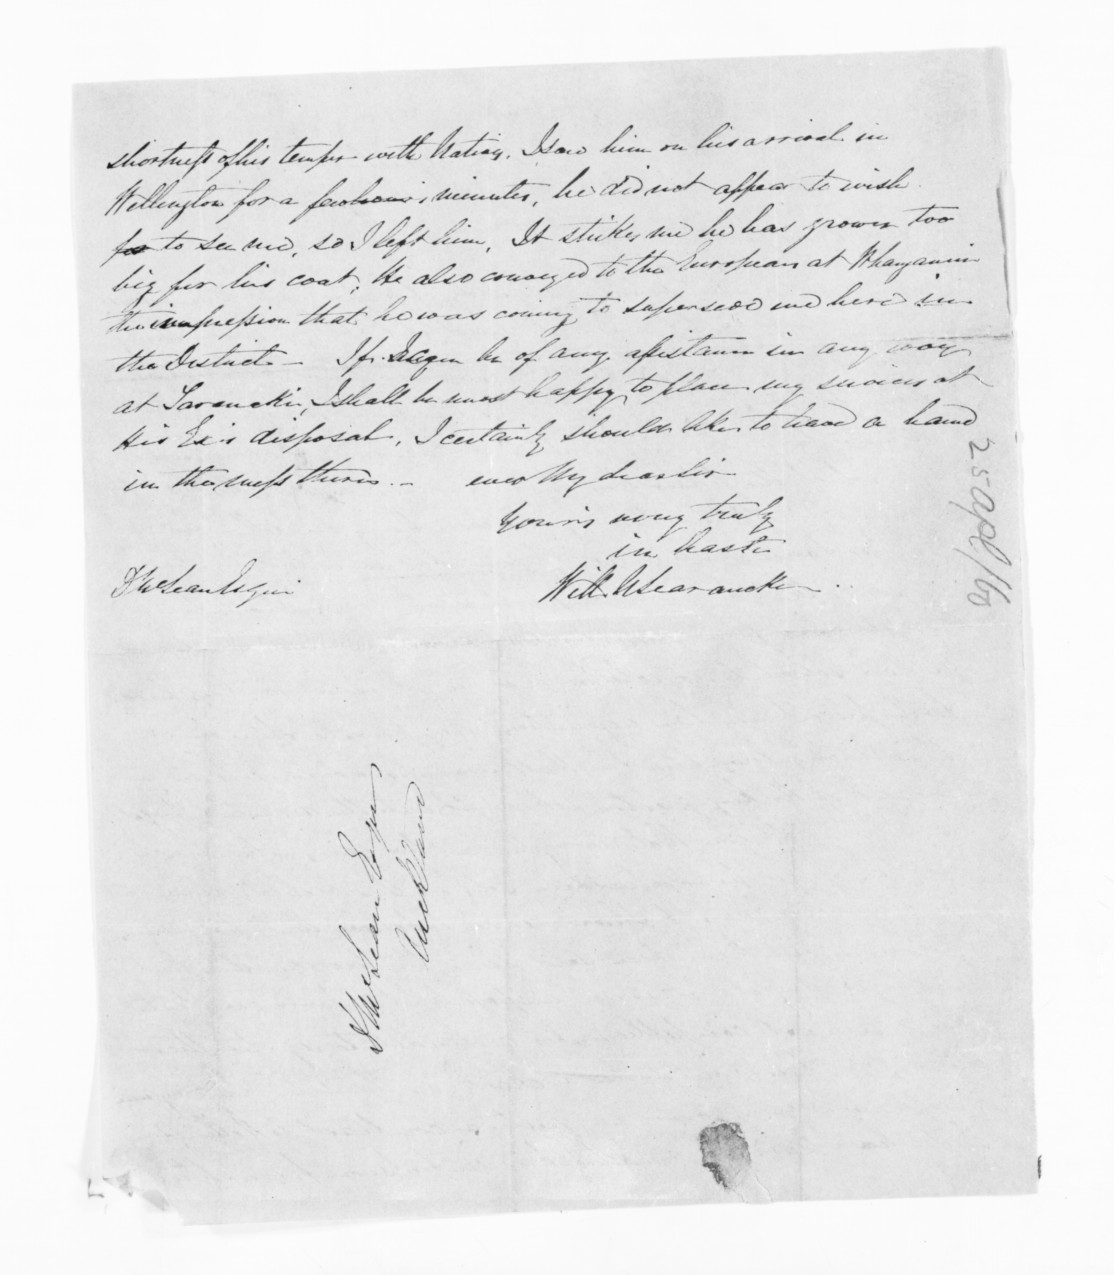 shortness of his temper with Natives. I saw him on his arrival in
Wellington for a few minutes, he did not appear to wish
to see me, so I left him. It strikes me he has grown too
big for his coat. He also conveyed to the Europeans at Whanganui
the impression that he was coming to supersede me here in
the District – If I can be of any assistance in any way
at Taranaki, I shall be most happy to place my services at
His Ex's disposal, I certainly should like to have a hand
in the mess there. – ever My dear Sir
Yours very truly
in haste
Will. N Searancke
D McLean Esquire
25 Apl/60
D McLean Esqre
Auckland